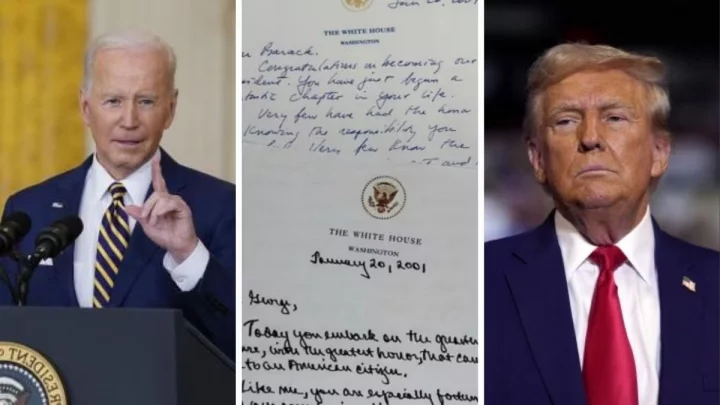 THE WHITE HOUSE
WASHINGTON
Barack.
Congratulations on becoming our
sident. You have just begun a
tastic chapter in your life.
Very few have had the honor
knowing the responsibility you
Very few know the
and
THE WHITE HOUSE
WASHINGTON
January 20, 2001
George,
Today you embark on the greates
with the greatest honor, that can
to an American citizen.
Like me, you are especially fortun
PRESIDENT